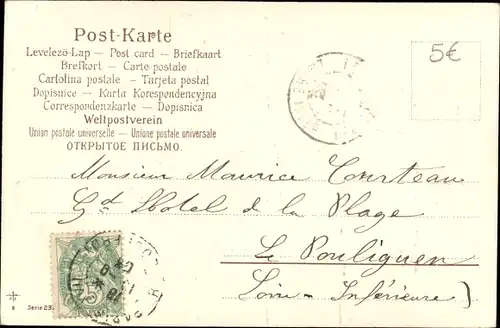 Post-Karte
Levelező-Lap — Post card — Briefkaart
Brefkort — Carte postale
Cartolina postale — Tarjeta postal
Dopisnice - Karta Korespondencyjna
Correspondenzkarte — Dopisnica
Weltpostverein
Union postale universelle — Unione postale universale
ОТКРЫТОЕ ПИСЬМО.
5€
Monsieur Maurice Courteau
Gd Hotel de la Plage
Le Pouliguen
(Loire-Inférieure)
Serie 23